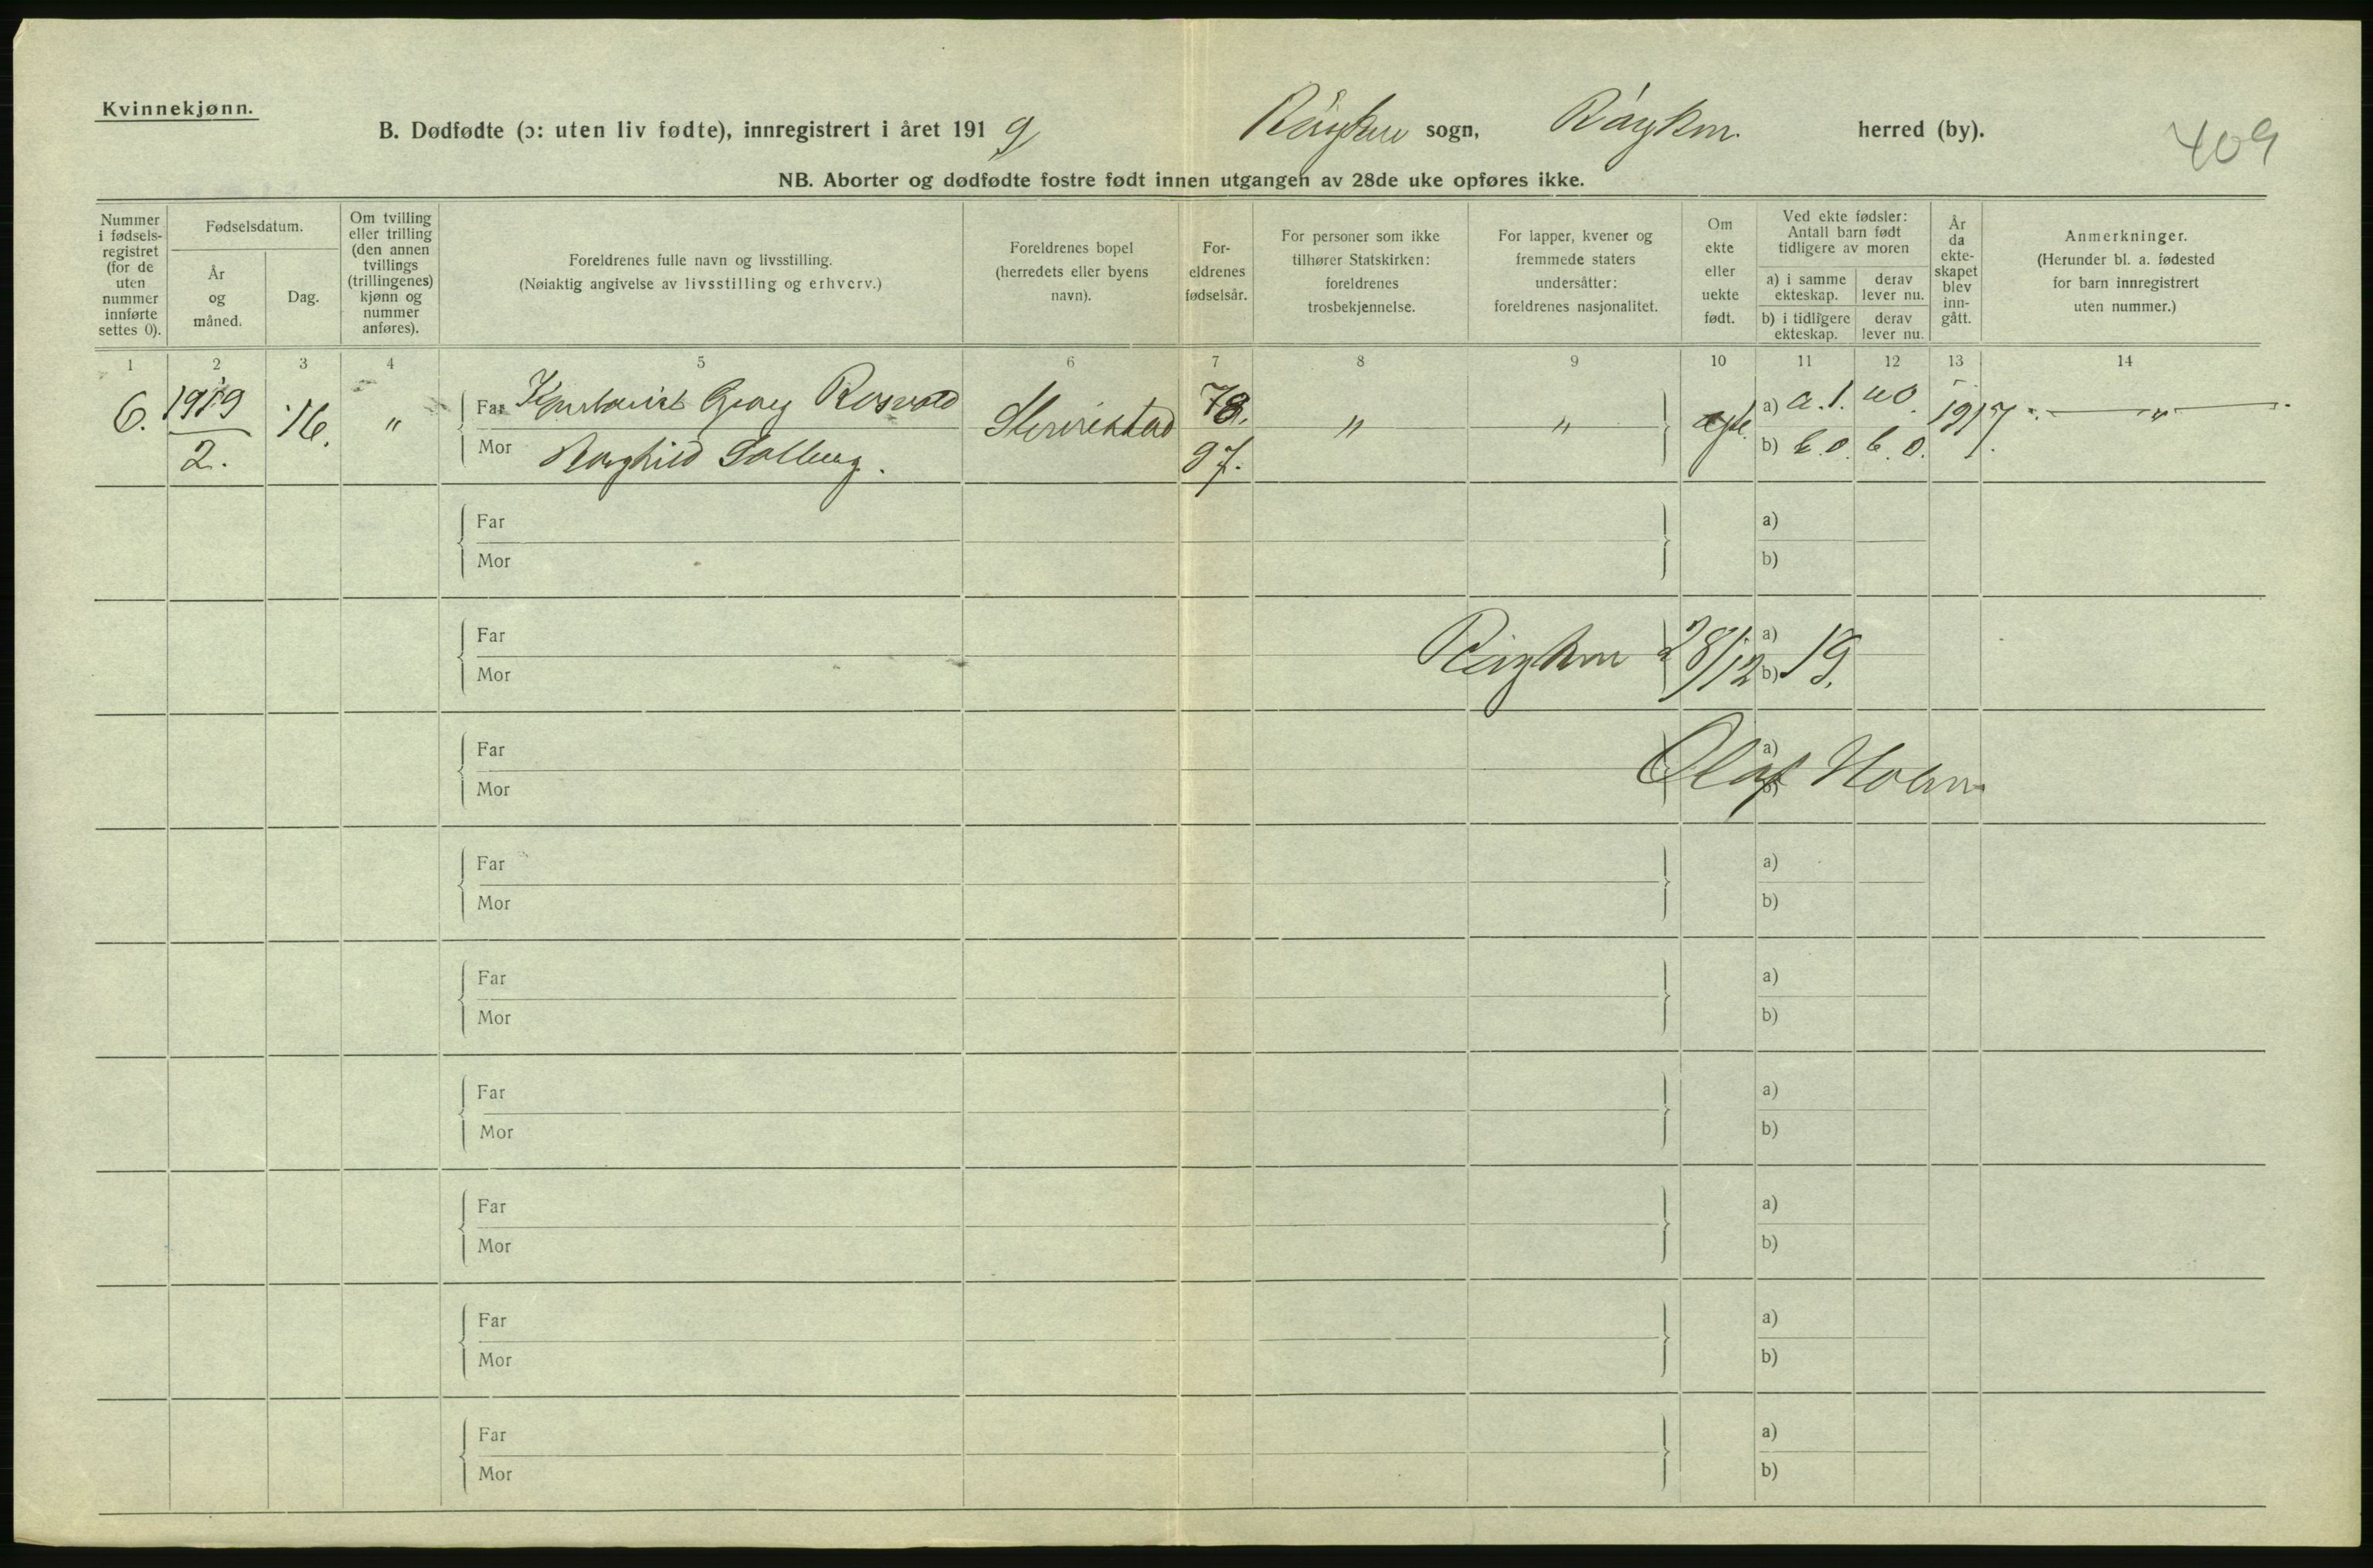 Kvinnekjønn.
B. Dødfødte (ɔ: uten liv fødte), innregistrert i året 1919 Røyken sogn, Røyken. herred (by).
409
NB. Aborter og dødfødte fostre født innen utgangen av 28de uke opføres ikke.
Nummer i fødsels-registret (for de uten nummer innførte settes 0).
Fødselsdatum.
År og måned.
Dag.
Om tvilling eller trilling (den annen tvillings (trillingenes) kjønn og nummer anføres).
Foreldrenes fulle navn og livsstilling.
(Nøiaktig angivelse av livsstilling og erhverv.)
Foreldrenes bopel (herredets eller byens navn).
For-eldrenes fødselsår.
For personer som ikke tilhører Statskirken: foreldrenes trosbekjennelse.
For lapper, kvener og fremmede staters undersåtter: foreldrenes nasjonalitet.
Om ekte eller uekte født.
Ved ekte fødsler: Antall barn født tidligere av moren
a) i samme ekteskap.
derav lever nu.
b) i tidligere ekteskap.
derav lever nu.
År da ekte-skapet blev inn-gått.
Anmerkninger.
(Herunder bl. a. fødested for barn innregistrert uten nummer.)
1 2 3 4 5 6 7 8 9 10 11 12 13 14
6. 1919 2. 16. " Far Georg Rosvold 78. " " a) a.1. a0. 1917. "
Mor Borghild Solberg. 97. b) b.0. b.0.
Far a)
Mor b)
Far a)
Mor b)
Røyken 28/12 19.
Far a)
Mor b)
Olaf Holm
Far a)
Mor b)
Far a)
Mor b)
Far a)
Mor b)
Far a)
Mor b)
Far a)
Mor b)
Far a)
Mor b)